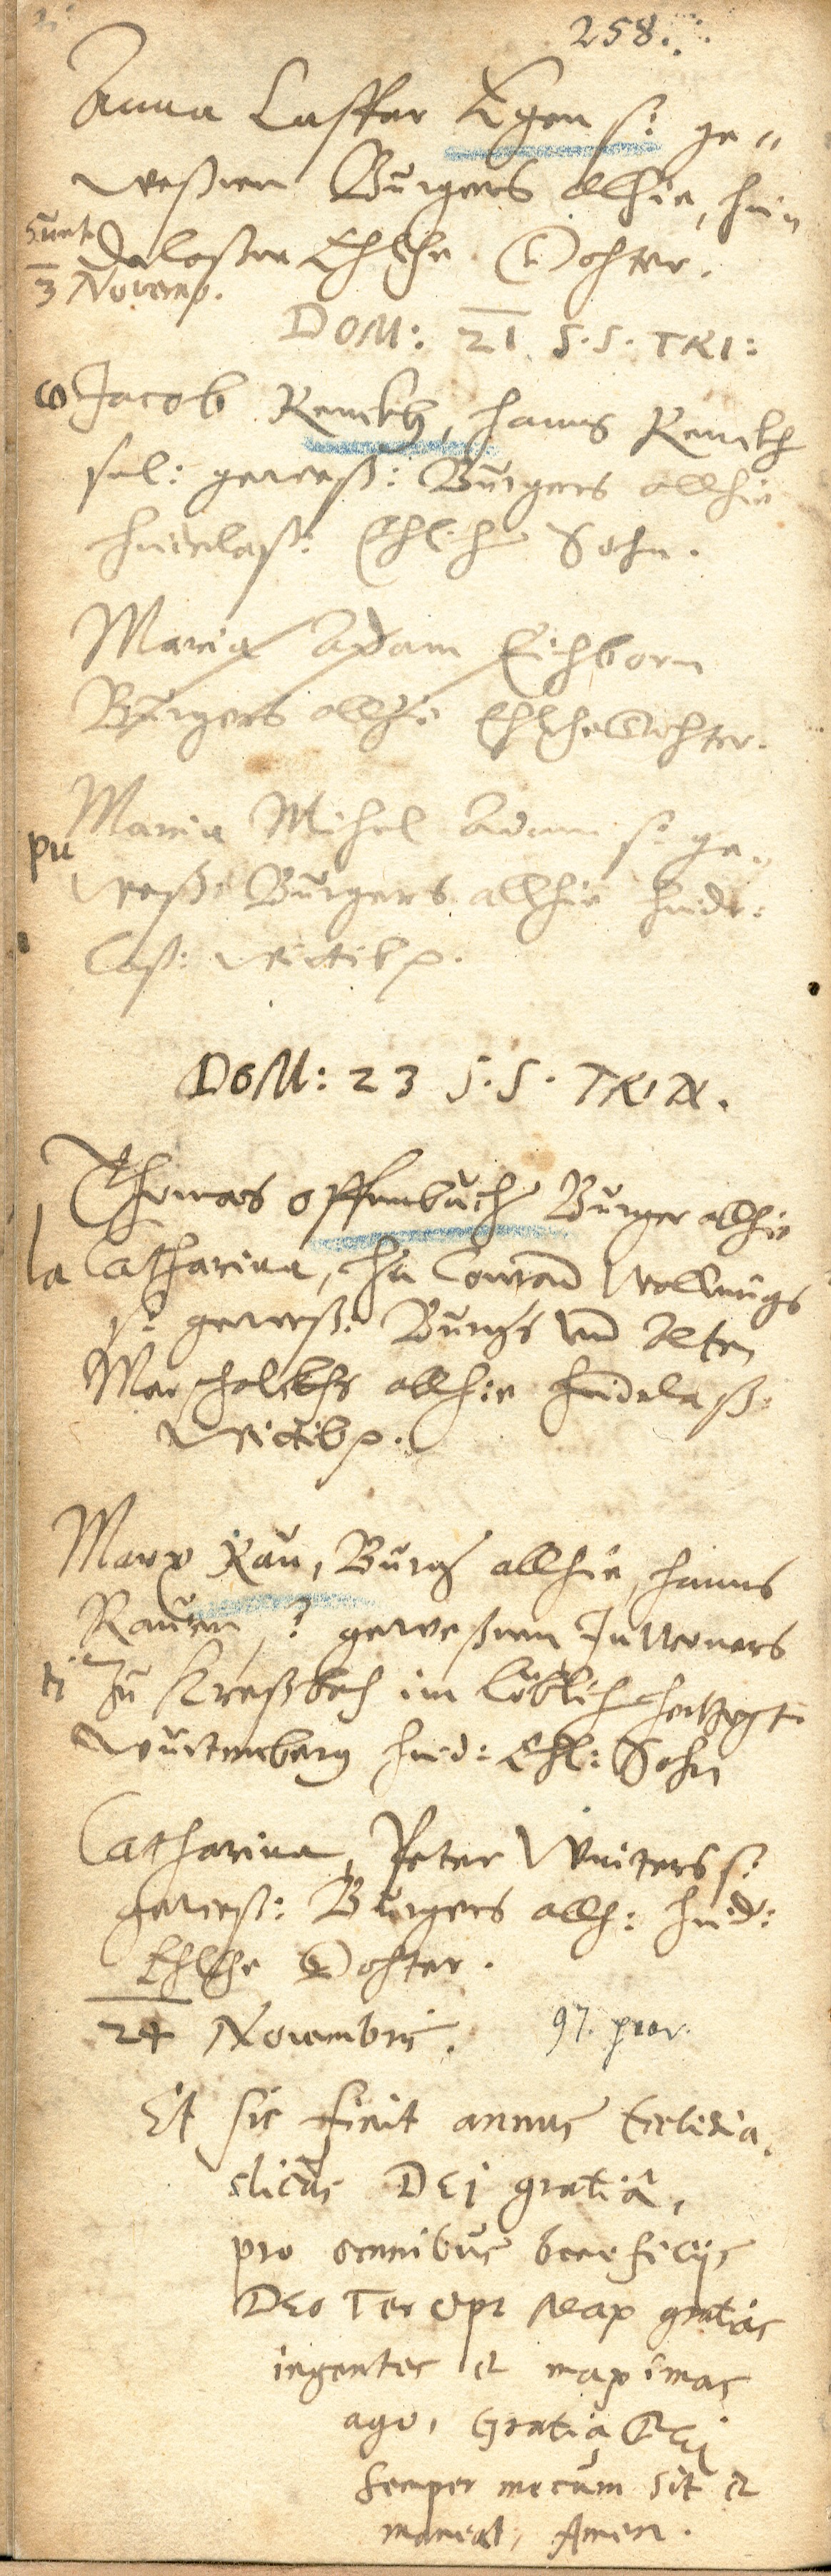 258.
Anna Casper Egen s: ge=
weßnen Burgers allhie, hin
derlaßne Ehliche Dohter.
3 Novemb.
DOM: 21. S.S. TRI:
co Jacob Renckh, hanns Renckh
sel: geweß: Burgers allhie
hinderlaß: Ehlich Sohn.
Maria Adam Eichborn
Burgers allhie Ehliche Dohter.
Maria Michel Adam s: ge=
pu
weß: Burgers allhie hinder:
laß: Wittib.
DOM: 23 S.S. TRIN.
Thomas Offenbuch Burger allhie
la Catharina, Conrad Wollnugs
s: geweß: Burgers und Alten
Marschalckhs allhie hinderlaß:
Wittib.
Marx Rau, Burger allhie, hanns
Rauen geweßnen Inwoners
ti Zu Kreßbach im löblich hertzogt:
Würtemberg hind: Ehl: Sohn
Catharina, Peter Winters s:
geweß: Burgers allh: hind:
Ehliche Dohter.
24 Novembris. 97. paar.
Et sic finit annus Ecclesia
sticus DEI gratiâ,
pro omnibus beneficijs
DEO Ter Opt Max gratias
ingentes et maximas
ago, Gratia DEI
semper mecum sit et
maneat, Amen.